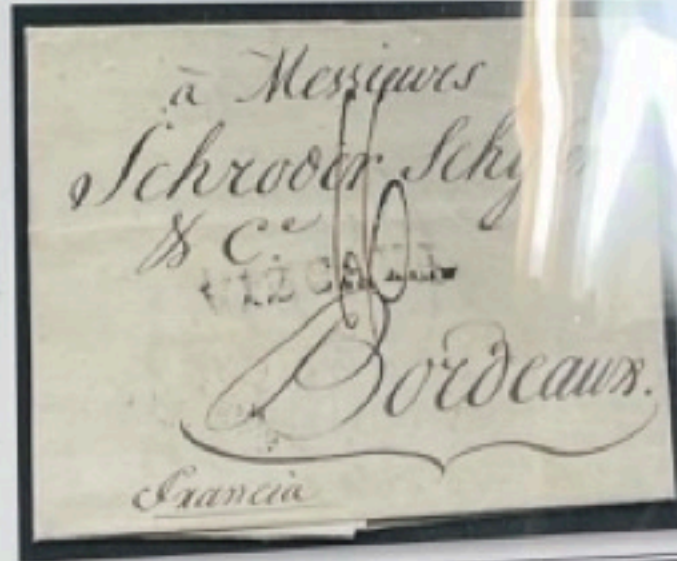 à Messieurs
Schroder Schÿler
& C.e
VIZCAYA
Bordeaux.
Francia